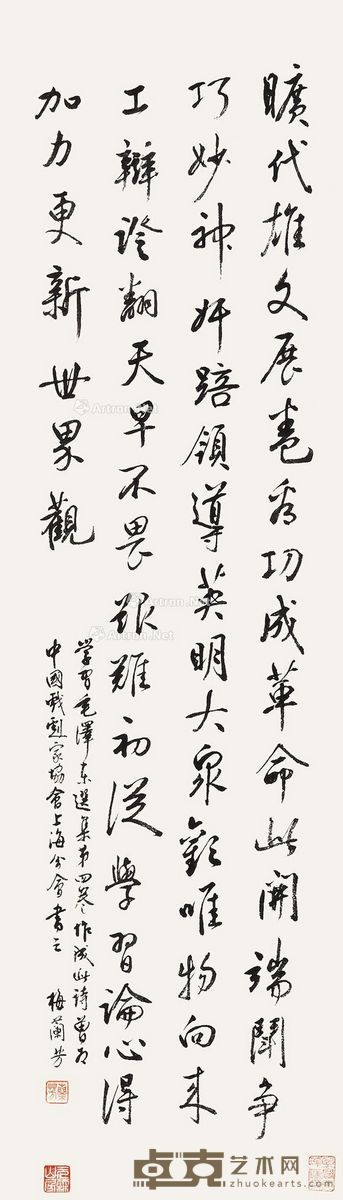 曠代雄文展卷看功成革命此開端鬭爭
巧妙神奸踣領導英明大衆歡唯物向來
工辯證翻天早不畏艱難初從學習論心得
加力更新世界觀
学習毛澤東選集第四卷作成此詩曾為
中國戲劇家協會上海分會書之 梅蘭芳
Artron.Net
卓克艺术网
www.zhuokearts.com